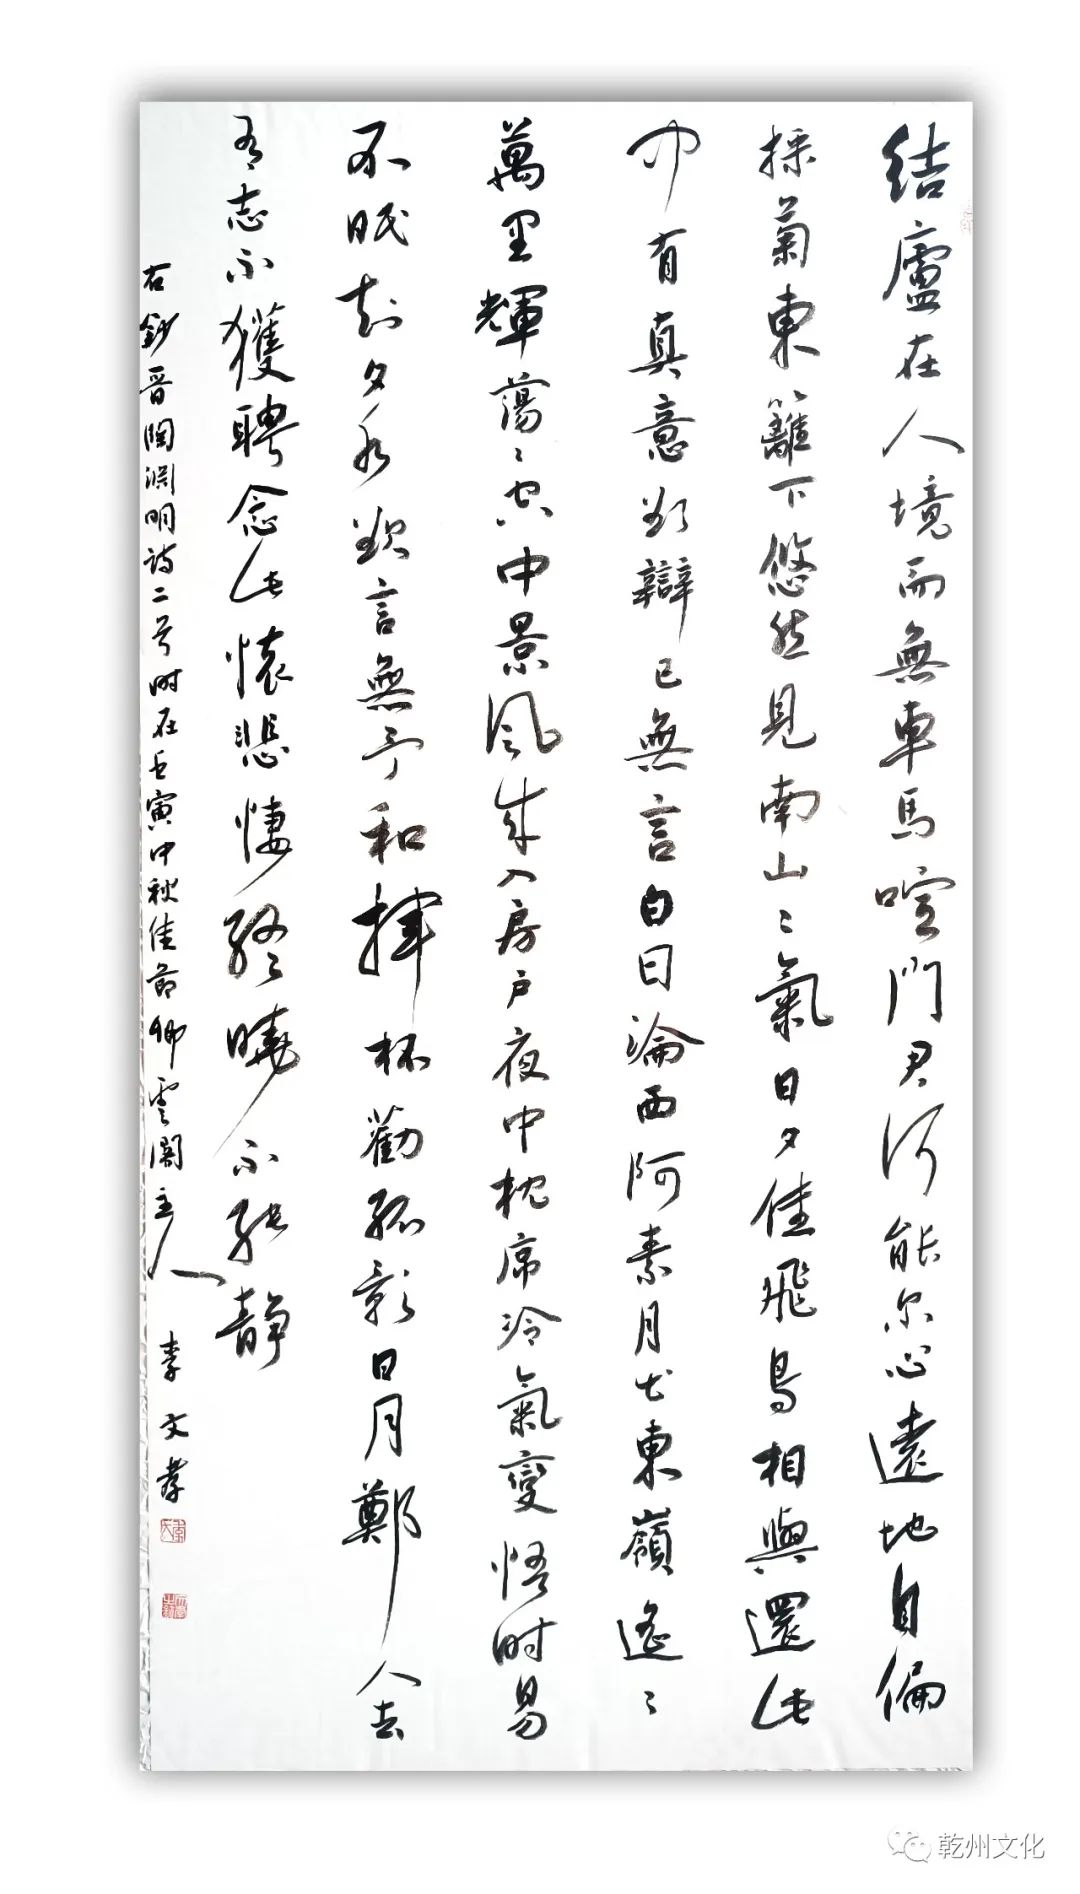 结廬在人境而無車馬喧門君何能尔心遠地自偏
採菊東籬下悠然見南山〻氣日夕佳飛鳥相與還此
中有真意欲辯已無言白日淪西阿素月出東嶺遙〻
萬里輝蕩〻空中景風来入房戶夜中枕席冷氣變悟时易
不眠知夕永欲言無予和揮杯勸孤影日月鄭人去
有志不獲聘念此懷悲悽終曉不能静
右鈔晋陶渊明诗二首时在壬寅中秋佳節卿雲阁主人 李文孝
乾州文化